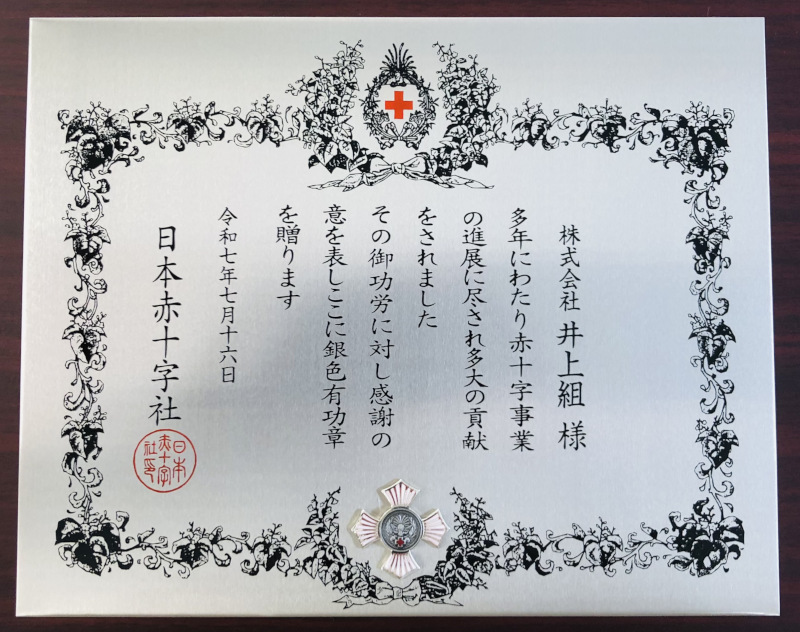 株式会社 井上組 様
多年にわたり赤十字事業
の進展に尽され多大の貢献
をされました
その御功労に対し感謝の
意を表しここに銀色有功章
を贈ります
令和七年七月十六日
日本赤十字社
日本
赤十字
社印